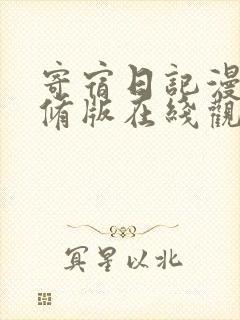 寄宿日記漫
脩版在綫觀
冥星以北